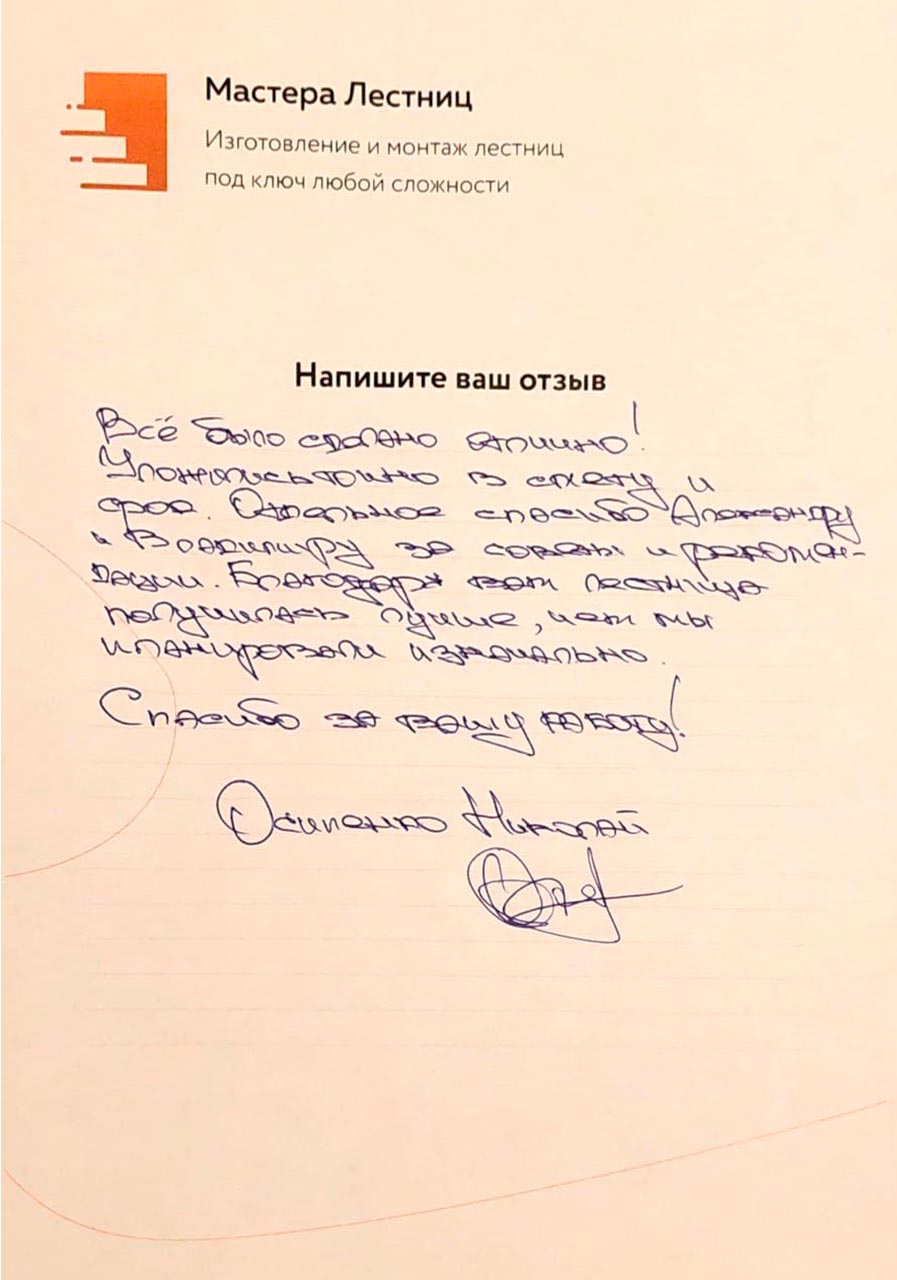 Мастера Лестниц
Изготовление и монтаж лестниц
под ключ любой сложности
Напишите ваш отзыв
Всё было сделано отлично!
Уложились точно в смету и
срок. Отдельное спасибо Александру
и Владимиру за советы и рекомен-
дации. Благодаря вам лестница
получилась лучше, чем мы
планировали изначально.
Спасибо за вашу работу!
Осипенко Николай